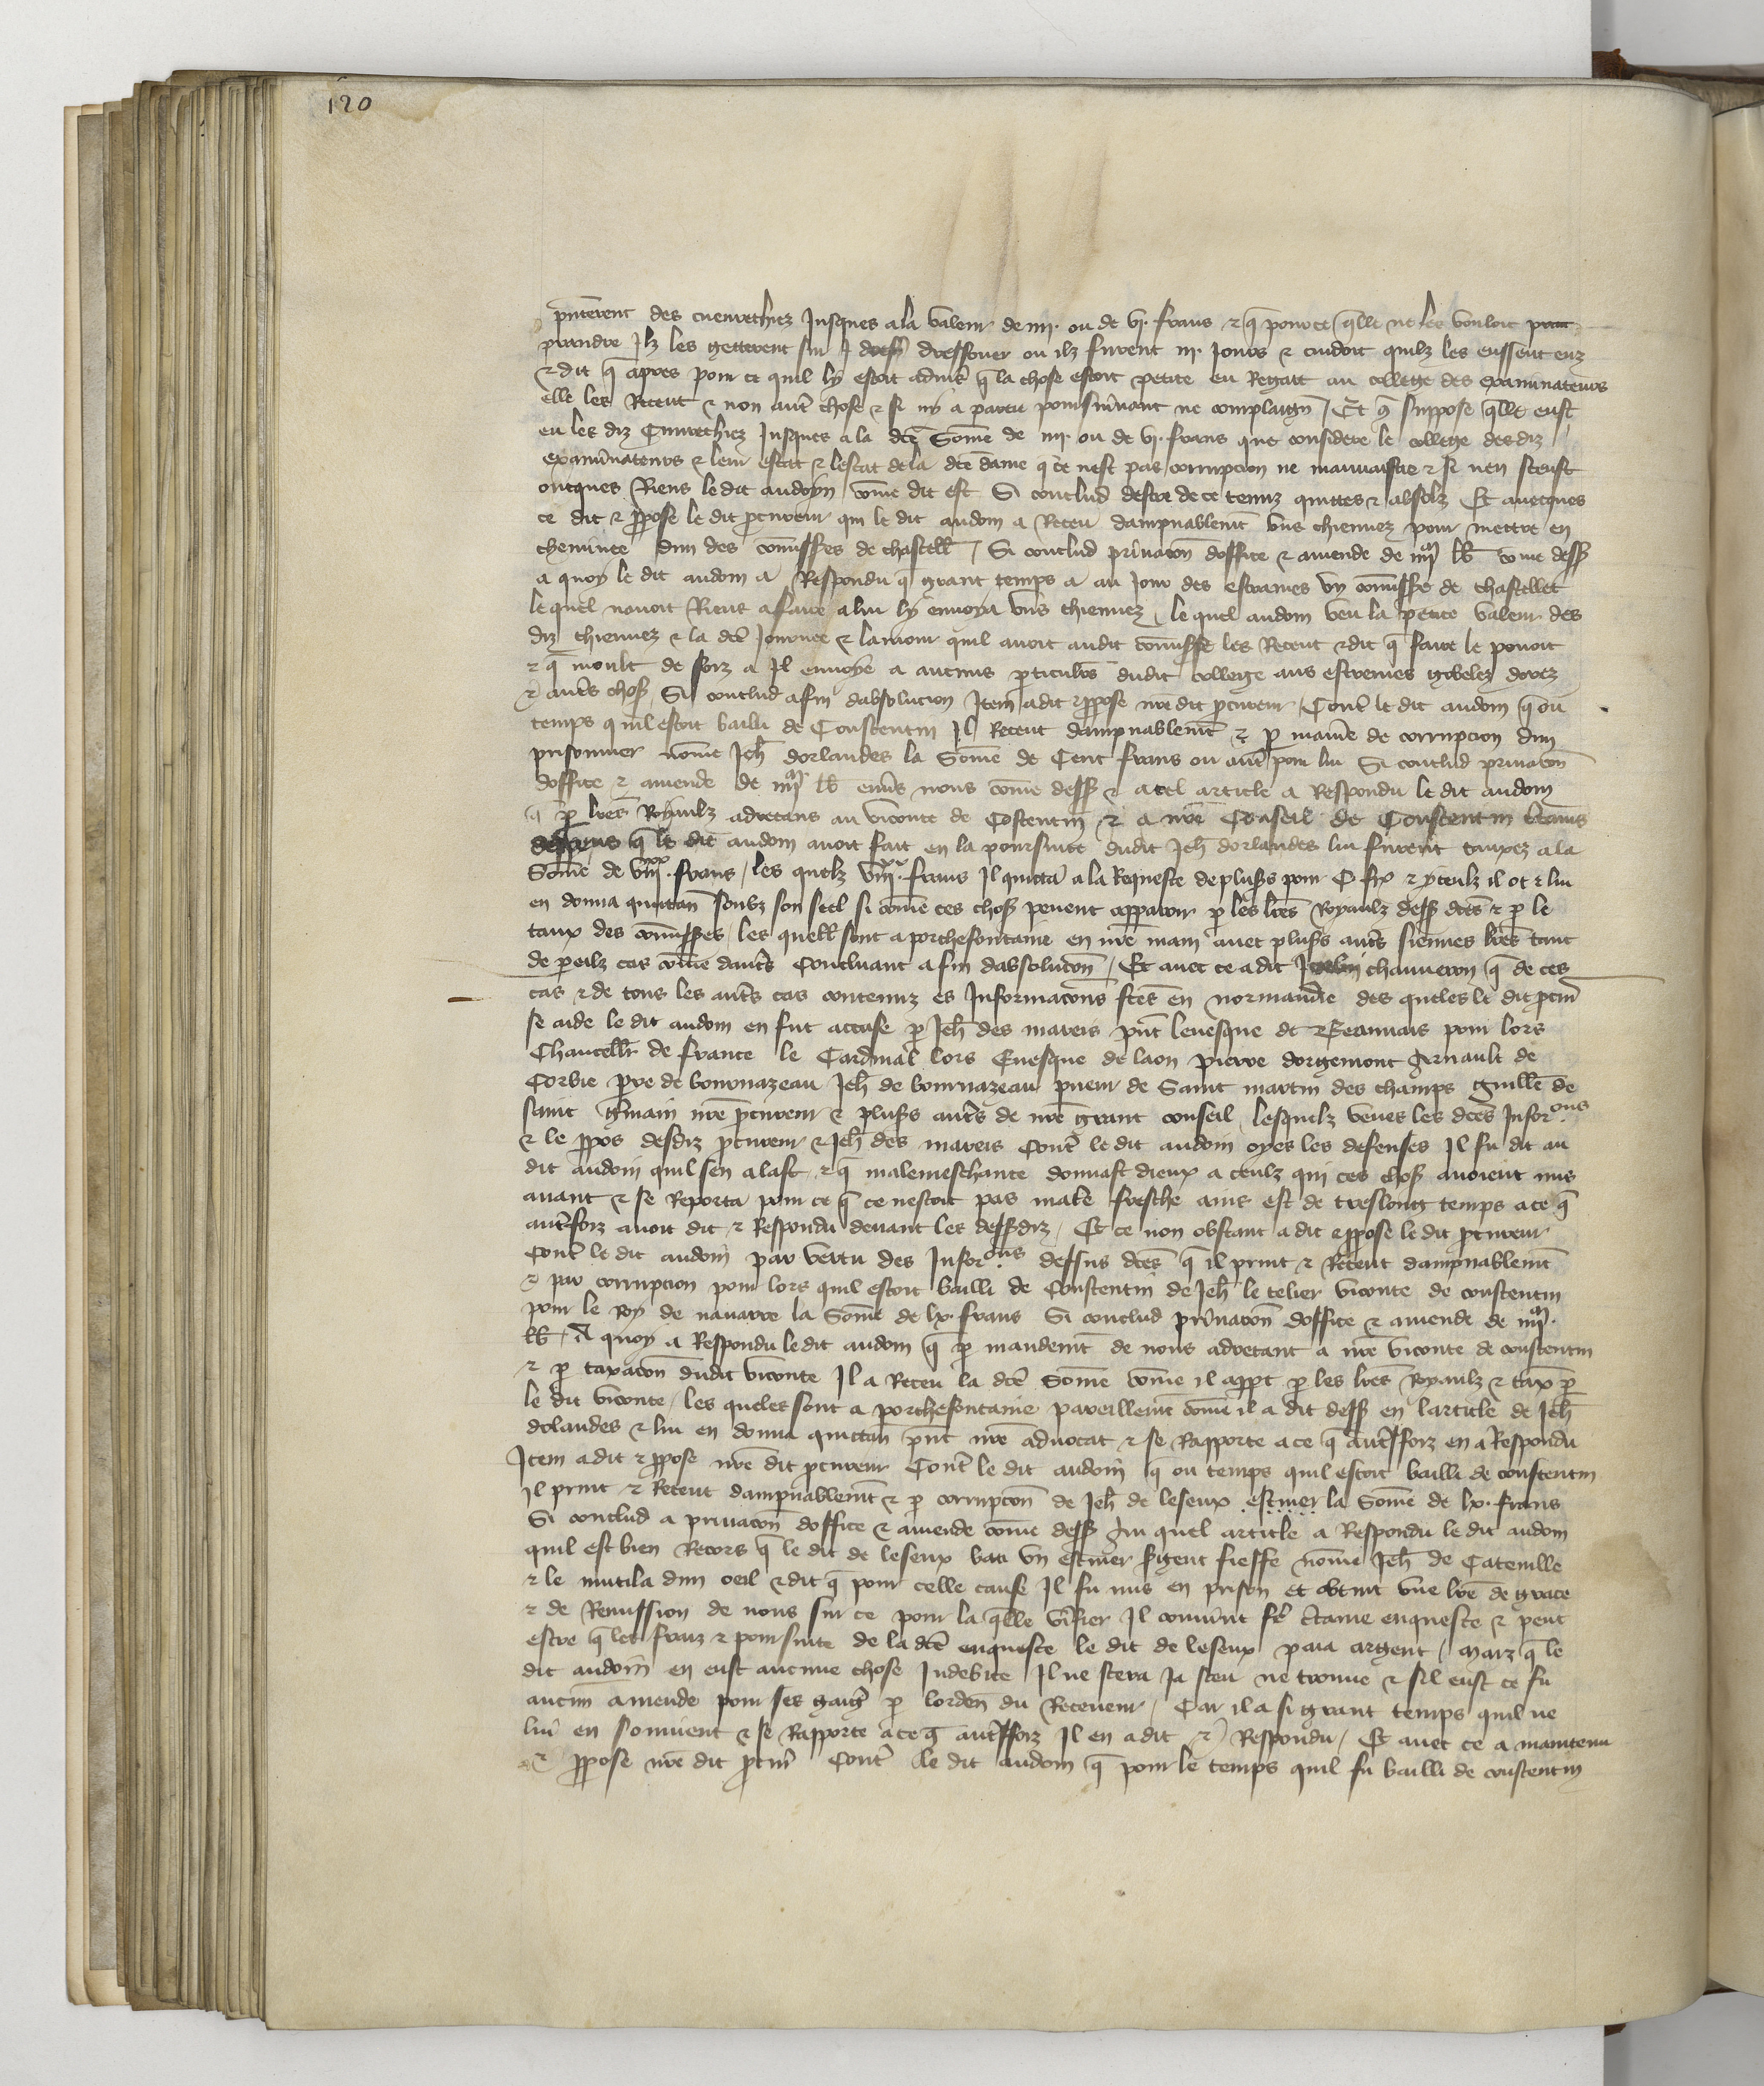 120
pñterent des cuevrechiez Jusques a la valeur de iiij. ou de vj. frans & q̃ pource qlle ne les vouloit
prendre Ilz les getterent sur j dressouer ou ilz furent iij. Jours & cuidoit quilz les eussent euz
& dit q̃ apres pour ce quil ly estoit advis q̃ la chose estoit petite eu Regart au college des examinateurs
elle les Receut & non autr̃ chose & si ny a partu poursuivant ne complaign̄ / Et q̃ suppose qlle eust
eu les diz Cuevrechiez Jusques a la dc̃e Som̃e de iiij. ou de vj. frans que considere le college desdiz
examinateurs & leur estat & lestat de la dc̃e dame q̃ ce nest pas corrupcion ne mauvaistie & si nen sceust
oncques Riens le dit audoyn com̃e dit est Si conclud destre de ce tenuz quittes & absolz Et avecques
ce dit & ꝓpose le dit ꝓcureur que le dit audoin a Receu dampnablemt̃ uns chiennez pour mettre en
cheminee dun des com̃iss̃es de chastell̃ / Si conclud privacõn doffice & amende de iiijᵐ ll̃ com̃e dess̃
a quoy le dit audoin a Respondu q̃ grant temps a au Jour des estraines un com̃iss̃e de chastellet
lequel navoit Riens a faire a lui ly envoya uns chiennez / le quel audoin veu la petite valeur des
diz chiennez & la dc̃e Journee & lamour quil avoit audit com̃iss̃e les Receut & dit q̃ faire le povoit
& q̃ moult de foiz a Il envoye a aucuns ꝑticulers dudit college aus estrenes gobelez dorez
& autr̃s chos̃ Si conclud afin dabsolucion Item a dit & ꝓpose nr̃e dit ꝓcureur Contr̃ le dit audoin q̃ ou
temps quil estoit bailli de Constentin Il Receut dampnablemt̃ & ꝑ maniere de corrupcion dun
prisonnier nom̃e Jeh̃ dorlandes la Som̃e de Cent frans ou autr̃ pour lui Si conclud privacõn
doffice & amende de iiijᵐ ll̃ envers nous com̃e dess̃ & a cel article a Respondu le dit audoin
q̃ ꝑ lr̃es Royaulz adrecans au viconte de Costentin & a nr̃e Conseil de Constentin
q̃ le dit audoin avoit fait en la poursuite dudit Jeh̃ dorlandes lui furent tauxez a la
Som̃e de viijˣˣ. frans / les quelz viijˣˣ. frans Il quicta a la Requeste de pluss̃ pour C fr̃ & yceulz il ot & lui
en donna quictan̄ soubz son seel si com̃e ces chos̃ pevent apparoir ꝑ les lr̃es Royaulz dess̃ dc̃es & ꝑ le
taux des com̃iss̃es / les quell̃ sont a porchefontaine en nr̃e main avec pluss̃ autr̃s siennes lr̃es tant
de pareilz cas com̃e dautr̃s Concluant afin dabsolucõn / Et avec ce a dit chauveron q̃ de ces
cas & de tous les autr̃s cas contenuz es Informacõns ftẽs en normandie des queles le dit ꝓcur̃
se aide le dit audoin en fut accuse ꝑ Jeh̃ des mareis ꝑnt̃ levesque de Beauvais pour lors
Chancell̃r de france le Cardinal lors Evesque de laon pierre dorgemont Arnault de
Corbie pr̃e de bournazeau Jeh̃ de bournazeau prieur de Saint martin des champs guill̃e de
saint Germain nr̃e ꝓcureur & pluss̃ autr̃s de nr̃e grant conseil lesquelz veues les dc̃es Inforõns
& le ꝓpos desdiz ꝓcureur & Jeh̃ des mareis Contr̃ le dit audoin oyes les defenses Il fu dit au
dit audoin quil sen alast & q̃ male meschance donnast dieux a ceulz qui ces chos̃ avoient mis
avant & se Reporta pour ce q̃ ce nestoit pas matr̃e fresche ains est de treslong temps a ce q̃
autr̃foiz avoit dit & Respondu devant les dess̃diz / Et ce non obstant a dit & ꝓpose le dit ꝓcureur
Contr̃ le dit audoin par vertu des Inforõns dessus dc̃es q̃ il print & Receut dampnablemt̃
& par corrupcion pour lors quil estoit bailli de Constentin de Jeh̃ le telier viconte de constentin
pour le Roy de navarre la Som̃e de lx. frans Si conclud privacõn doffice & amende de iiijᵐ.
ll̃ / A quoy a Respondu le dit audoin q̃ ꝑ mandemt̃ de nous adrecant a nr̃e viconte de constentin
& ꝑ taxacõn dudit viconte Il a Receu la dc̃e Som̃e com̃e il appt̃ ꝑ les lr̃es Royaulz & tax̃ ꝑ
le dit viconte / les queles sont a porchefontaine pareillemt̃ com̃e il a dit dess̃ en larticle de Jeh̃
dolandes & lui en donna quictan̄ ꝑnt̃ nr̃e advocat & se Rapporte a ce q̃ autr̃sfoiz en a Respondu
Item a dit & ꝓpose nr̃e dit ꝓcureur Contr̃ le dit audoin q̃ ou temps quil estoit bailli de constentin
Il print & Receut dampnablemt̃ & ꝑ corrupcõn de Jeh̃ de leseux escuier la Som̃e de lx. frans
Si conclud a privacõn doffice & amende com̃e dess̃ Au quel article a Respondu le dit audoin
quil est bien Recors q̃ le dit de leseux bati un escuier s̃gent fieffe nom̃e Jeh̃ de Catenille
& le mutila dun oeil & dit q̃ pour celle cause Il fu mis en prison et obtint une lr̃e de grace
& de Remission de nous sur ce pour la qlle v̾ifier Il convint fe̾ c̾taine enqueste & peut
estre q̃ les fraiz & poursuite de la dc̃e enqueste le dit de leseux paia argent / Marz q̃ le
dit audoin en eust aucune chose Indebite Il ne sera Ja sceu ne trouve & sil eust ce fu
aucun amende pour ses gaig̃ ꝑ lorden̄ du Receveur / Car il a si grant temps quil ne
lui en souvient & se Rapporte a ce q̃ autr̃sfoiz Il en a dit & Respondu / Et avec ce a maintenu
& ꝓpose nr̃e dit ꝓcur̃ Contr̃ le dit audoin q̃ pour le temps quil fu bailli de constentin